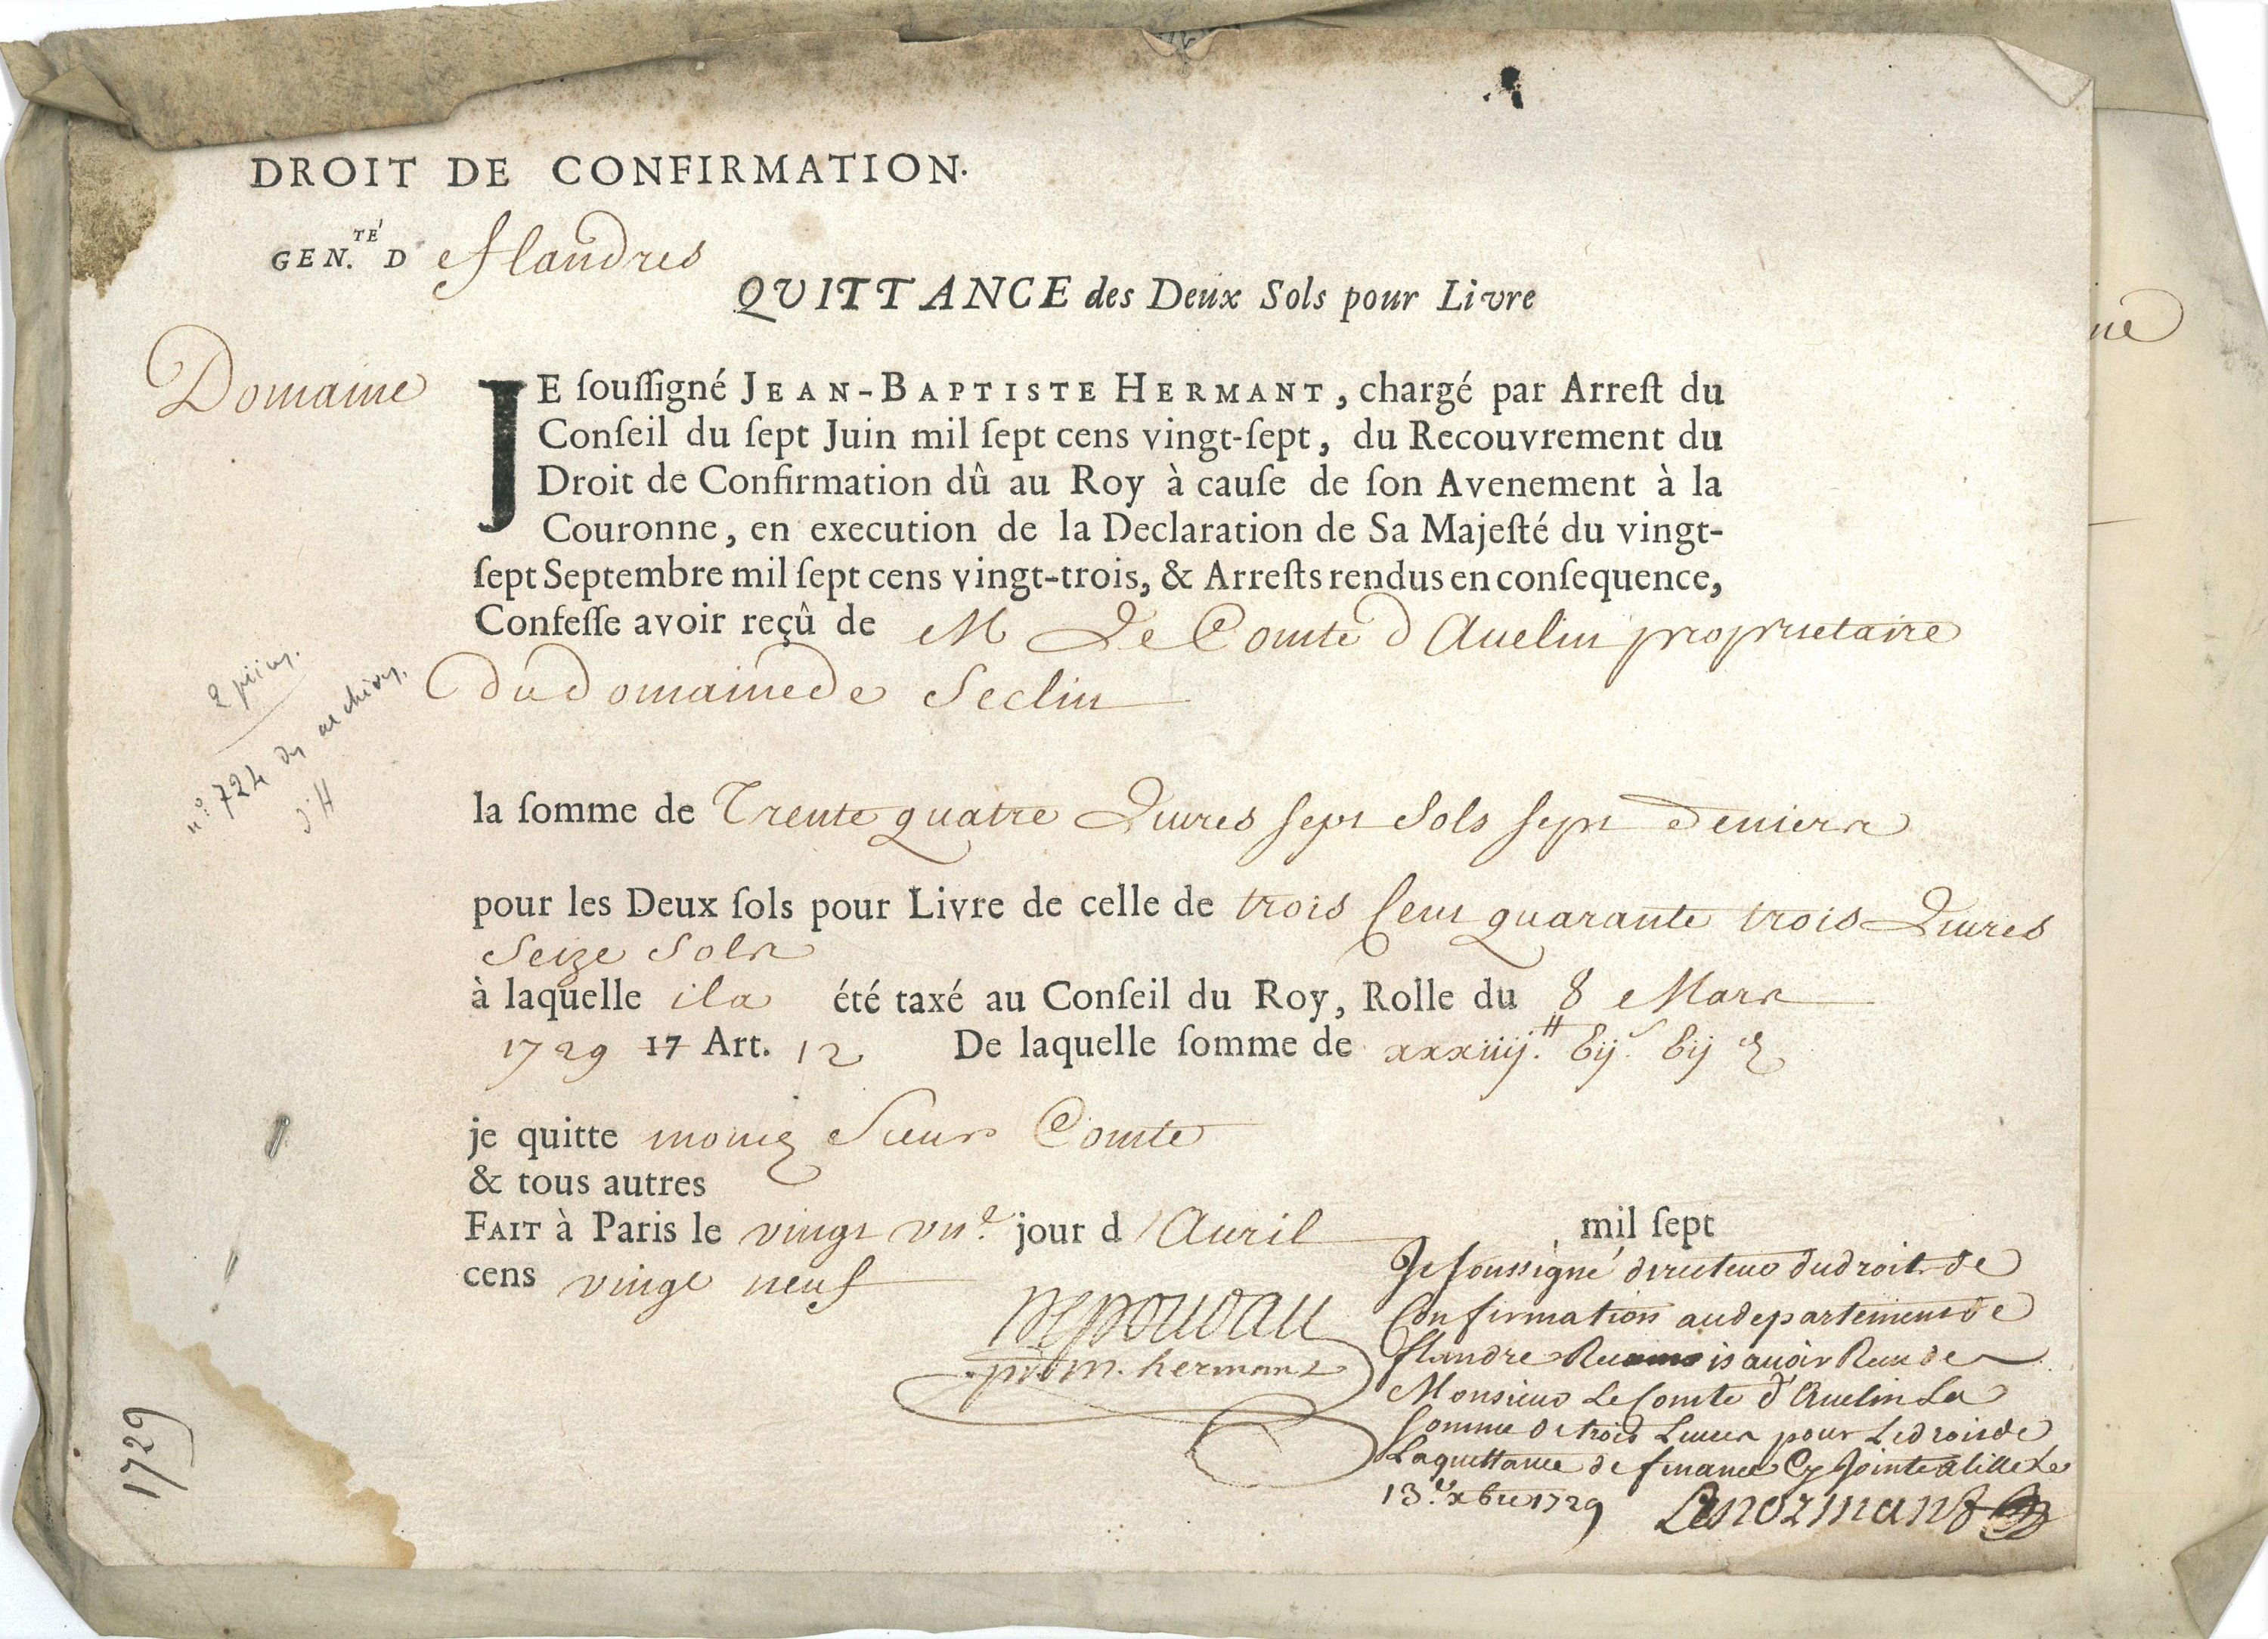 DROIT DE CONFIRMATION.
GEN.TÉ D flandres
QUITTANCE des Deux Sols pour Livre
Domaine
JE souſſigné JEAN-BAPTISTE HERMANT, chargé par Arreſt du
Conſeil du ſept Juin mil ſept cens vingt-ſept, du Recouvrement du
Droit de Confirmation dû au Roy à cauſe de ſon Avenement à la
Couronne, en execution de la Declaration de Sa Majeſté du vingt-
ſept Septembre mil ſept cens vingt-trois, & Arreſts rendus en conſequence,
Confeſſe avoir reçû de M Le Comte d Auelin proprietaire
du domaine de Seclin
2 pièces.
n.º 724 des archives
d'H
la ſomme de Trente quatre Liures sept Sols sept deniers
pour les Deux ſols pour Livre de celle de trois Cent quarante trois Liures
Seize Sols
à laquelle il a été taxé au Conſeil du Roy, Rolle du 8 Mars
1729 17 Art. 12 De laquelle ſomme de xxxiiij.# bij.s bij d
je quitte mond Sieur Comte
& tous autres
FAIT à Paris le vingt vn.e jour d Auril mil ſept
cens vingt neuf
pr m. hermant
Je soussigné directeur du droit de
Confirmation au departement de
flandre avoir Receu de
Monsieur Le Comte d'Auelin La
Somme de trois Liures pour Le droit de
La quittance de finance Cy Jointe a lille Le
13.e xbre 1729 Lenormant
1729
ne